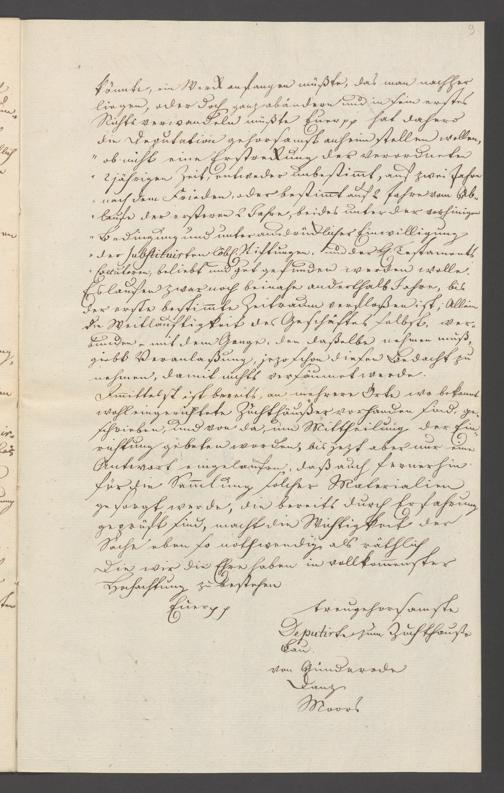 9.
könnte, ein Werk anfangen müßte, das man nachher
liegen, oder doch ganz abändern und in sein erstes
Nichts verwandeln müßte Euer pp hat dahero
die Deputation gehorsamst anheim stellen wollen,
" ob nicht eine Erstreckung der verordneten
" 2jährigen Zeit, entweder unbestimmt, auf zwei Jahre
" nach dem Frieden, oder bestimmt auf 2 Jahre vom Ab-
" laufe der ersteren 2 Jahre, beides unter der vorherigen
" Bedingung und unter ausdrücklicher Einwilligung
" der substituirten löbl. Stiftungen, und der H. Testaments
Executoren, beliebt und gut gefunden werden wolle.
Es laufen zwar noch beinahe anderthalb Jahre, bis
der erste bestimmte Zeitraum verfloßen ist; Allein
die Weitläuftigkeit des Geschäftes selbst, ver-
bunden mit dem Gange, den dasselbe nehmen muß,
giebt Veranlaßung, jezo schon diesen Bedacht zu
nehmen, damit nichts versäumet werde.
Immittelst ist bereits, an mehrere Orte wo bekannt
wohleingerichtete Zuchthäußer vorhanden sind, ge-
schrieben, und von da, um Mittheilung der Ein-
richtung gebeten worden, bis jezt aber nur eine
Antwort eingelaufen, daß auch fernerhin
für die Sammlung solcher Materialien
gesorgt werde, die bereits durch Erfahrung
geprüft sind, macht die Wichtigkeit der
Sache eben so nothwendig als räthlich
Die wir die Ehre haben in vollkommenster
Hochachtung zu bestehen
Euer pp
treugehorsamste
Deputirte zum Zuchthauß-
Bau
von Günderrode
Danz
Moors